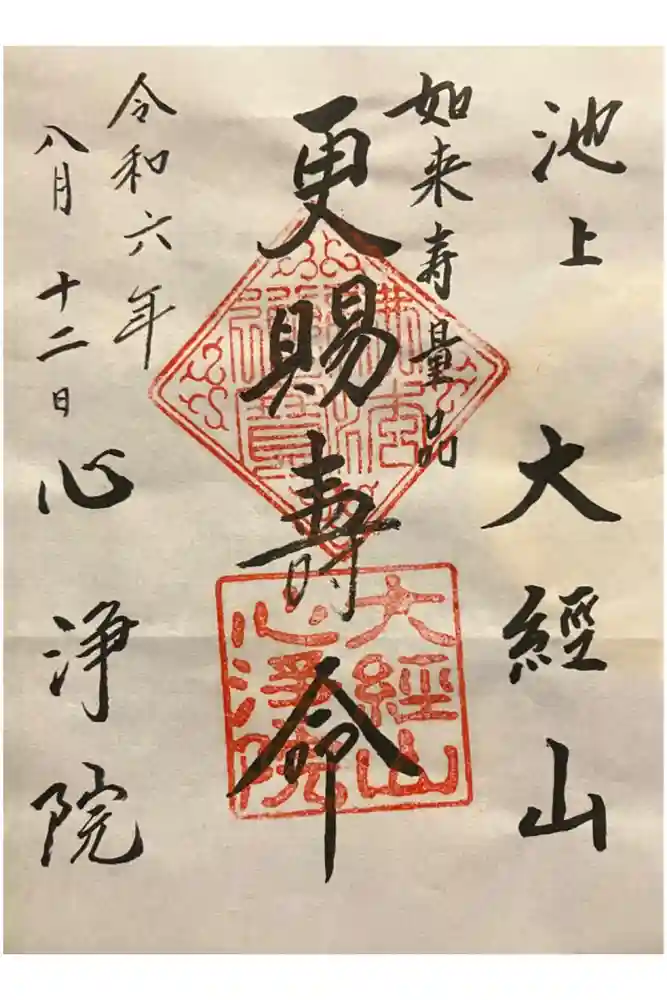 池上 大經山
如来寿量品
更賜壽命
令和六年
八月十二日
心浄院
大經山
心淨院